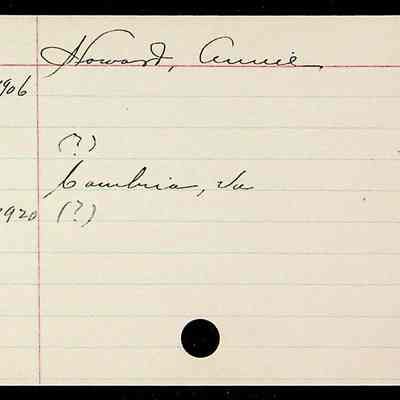 Howard, Annie
1906
(?)
Cambria, Va
1920 (?)